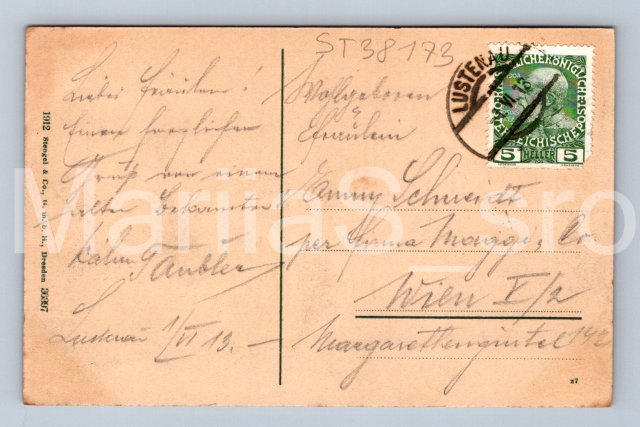 ST38173
LUSTENAU
1908
KAISERLICHEKÖNIGLICHE POST
ÖSTERREICHISCHE
5 HELLER 5
Liebes Fräulein.
Einen herzlichen
Gruß von einem
alten Bekannten
Taubler
Lustenau 1/VI 13.—
Wolgeboren
Fräulein
Emmy Schmeidt
per Firma Maggi, Co
Wien V/2
Margarettengürtel 142
1912 Stengel & Co., G. m. b. H., Dresden 36397
27
MariiaS_sro